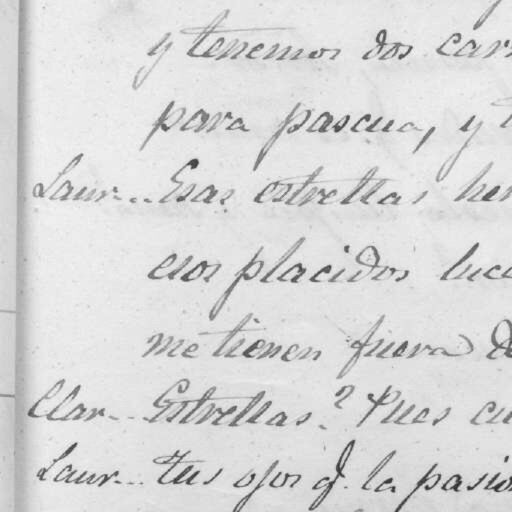 y tenemos dos car
para pascua, y
Laur... Esas estrellas her
esos placidos luce
me tienen fuera d
Clar... Estrellas? Pues cu
Laur... tus ojos q. la pasio